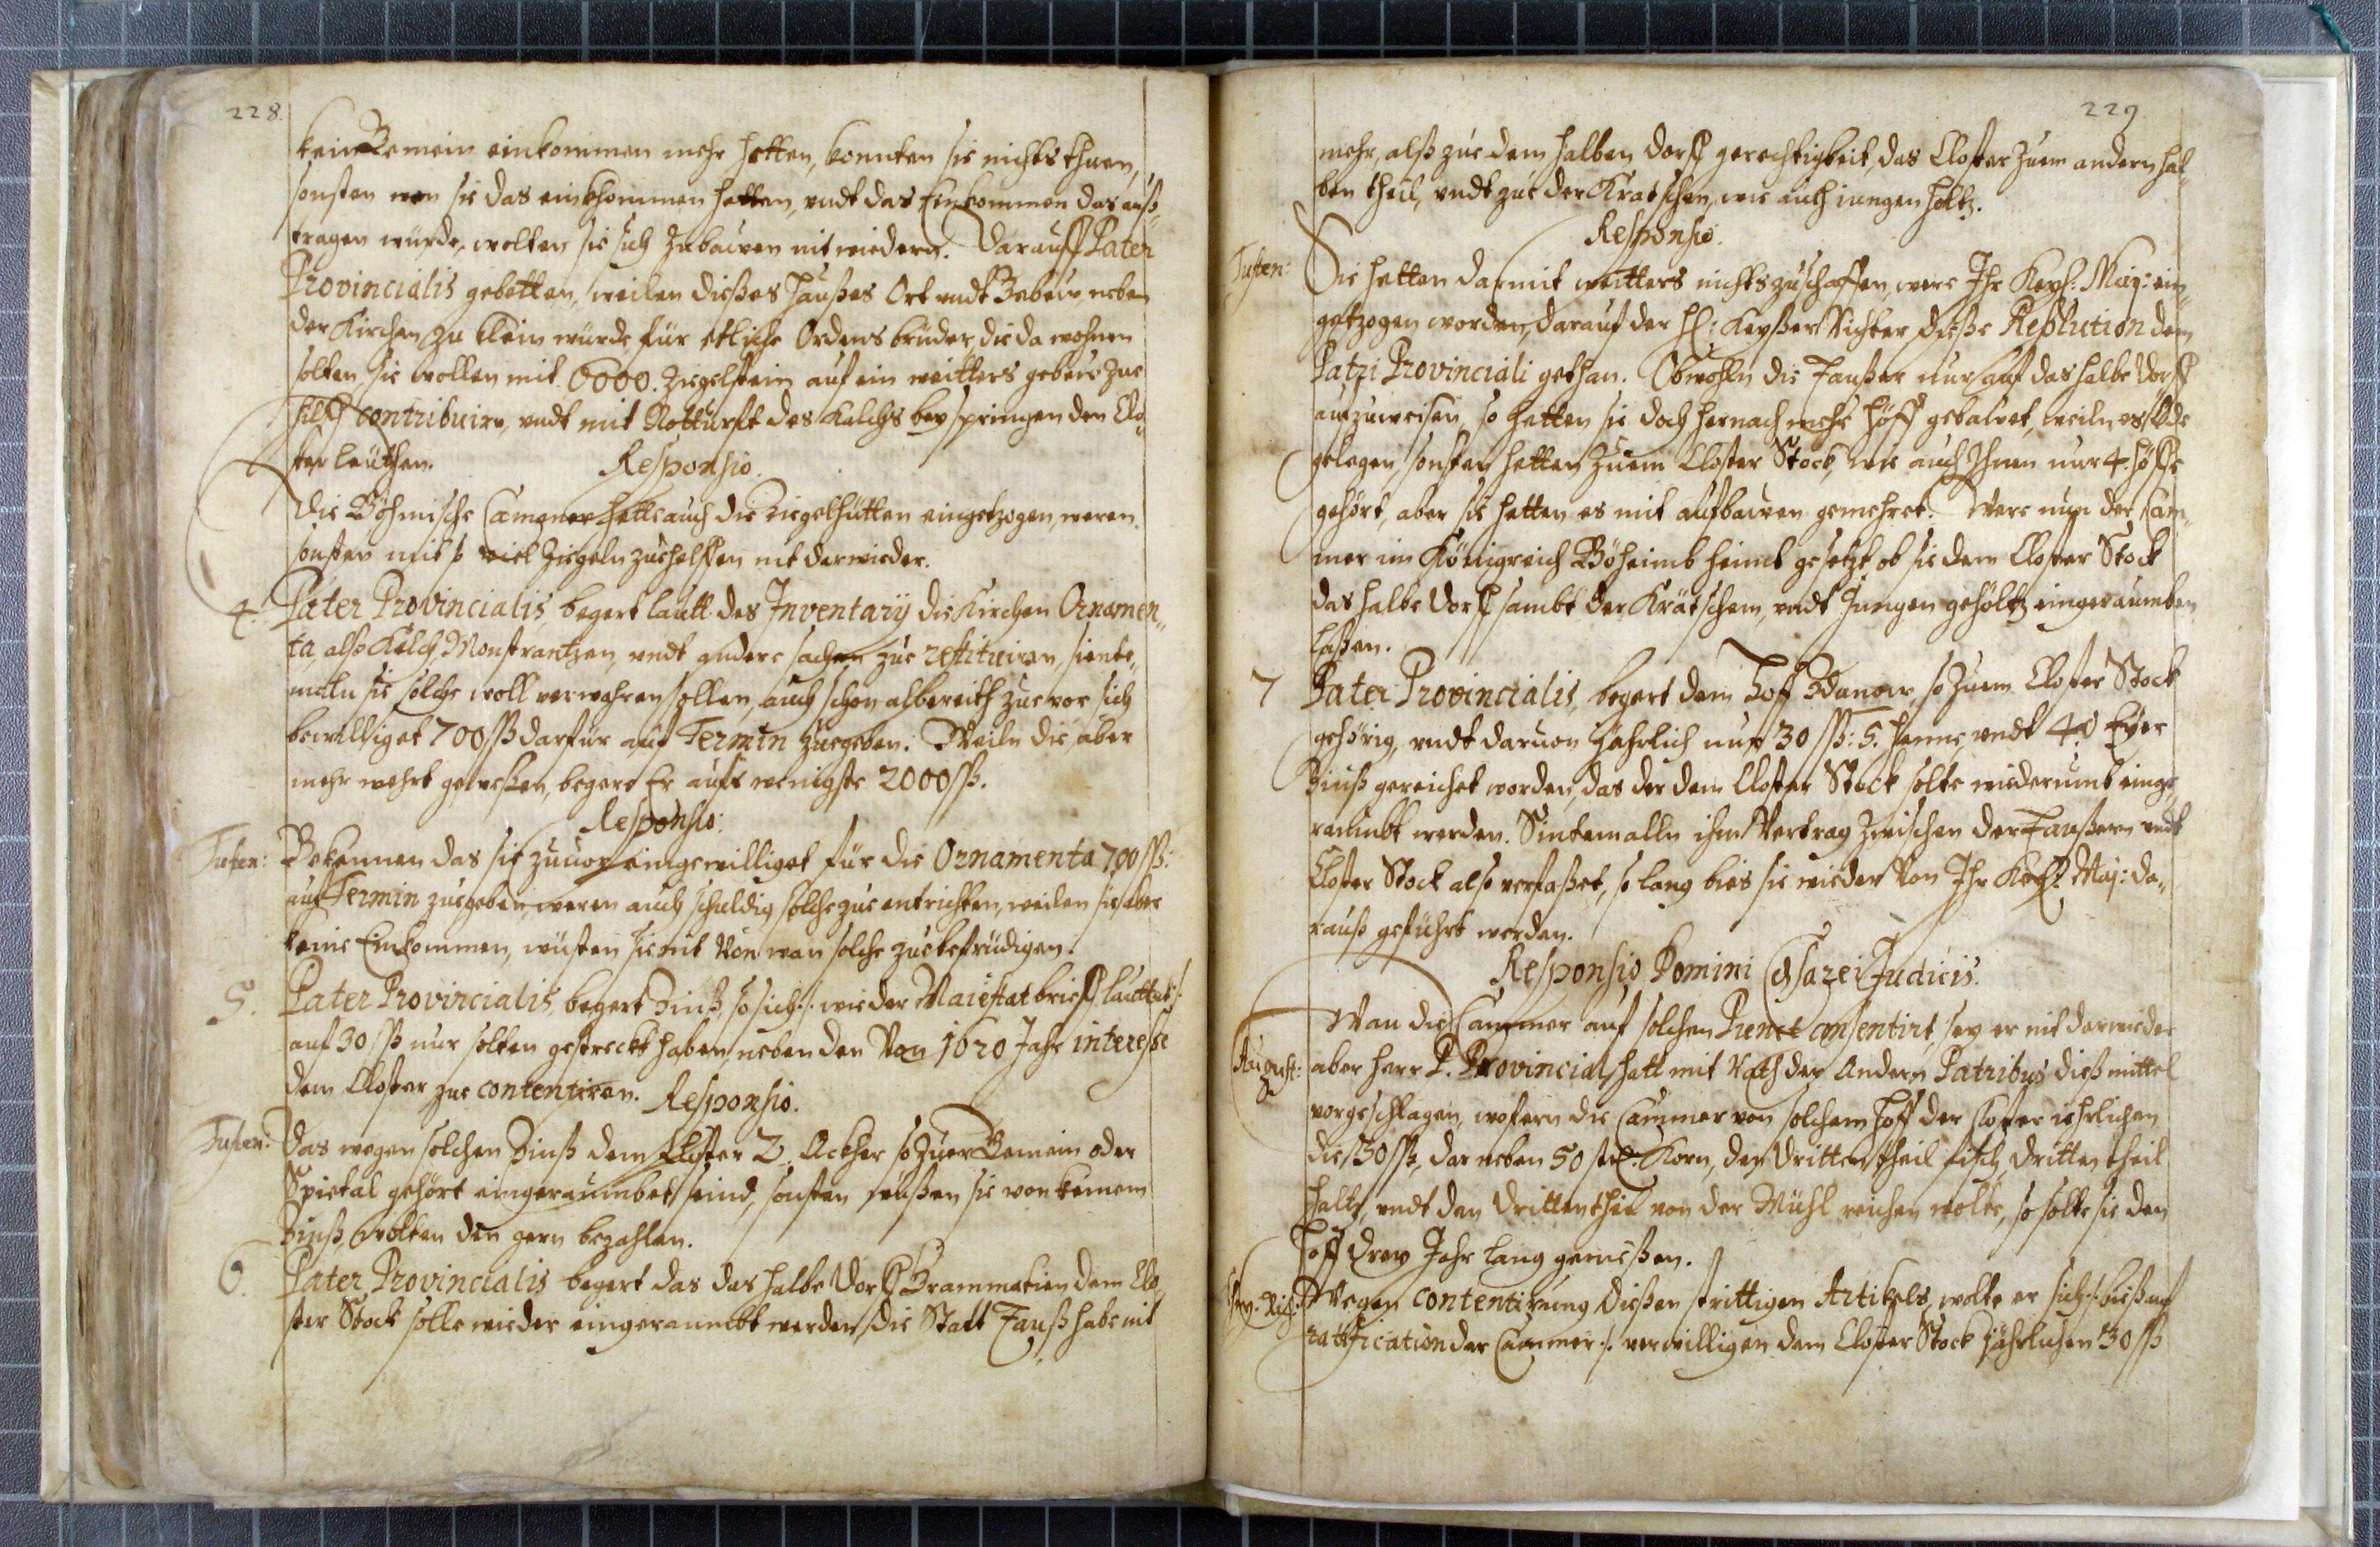 228.
kein Gemein einkommen mehr hetten, konnten sie nichts thuen,
sonsten wen sie das einkhommen hetten, undt das Einkommen das auß„
tragen würde, wolten sie sich Zubawen nit wiedern. Darauff Pater
Provincialis gebetten, weilen dießes Haußes Ort undt Gebew neben
der Kirchen zu klein würde für etliche Ordens brüder, die da wohnen
solten, sie wollen mit 6000. Ziegelstein auf ein weitters gebew zue
hilff contribuirn, undt mit Notturfft des Kalchs bey springen den Clo„
ster leüthen.
Responsio.
Die Böhmische Cammer hette auch die Ziegelhütten eingetzogen, weren
sonsten mit so viel Ziegeln zuehelffen nit darwieder.
4. Pater Provincialis, begert lautt des Inventarÿ die Kirchen Ornamen„
ta, alß Kelch Monstrantzen, undt andere sachen zue restituiren, sinte„
maln sie solche woll verwahren sollen, auch schon albereith zuevor sich
bewilliget 700 ß darfür auf Termin zuegeben. Weiln die aber
mehr wehrt geweßen, begere Er aufs wenigste 2000 ß.
Responsio.
Tusten: Bekennen das sie zuvor eingewilliget für die Ornamenta 700 ß:
auf Termin zuegeben, weren auch schuldig solche zue entrichten, weilen sie aber
keine Einkommen, wüsten sie nit von wan solche zue befrüdigen.
5. Pater Provincialis, begert Zinß, so sich ./. wie der Maiestat brieff lauttet ./.
auf 30 ß nur solten gestreckt haben, neben den von 1620 Jahr interesse
dem Closter zue contentiren. Responsio.
Tusten: Das wegen solchen Zinß dem Closter 2. Acker so zuer Gemein oder
Spietal gehört eingeraumbet seind, sonsten wißen sie von keinem
Zinß, wolten den gern bezahlen.
6. Pater Provincialis begert das das halbe Dorff Grammatien dem Clo„
ster Stock solle wieder eingeraumbt werden, die Statt Tauß habe nit
229
mehr, alß zue dem halben Dorff gerechtigkeit, das Closter Zuem andern hal„
ben theil, undt zue der Kratschen, wie auch iungen holtz.
Responsio.
Tusten: Die hetten darmit weitters nichts zuschaffen, were Ihr Keyß: May: ein„
getzogen worden, darauf der H: Keyßer Richter, dieße Resolution dem
Patri Provinciali gethan. Obwohln die Taußer nur auf das halbe Dorff
auszuweisen, so hetten sie doch hernach mehr Höff gebawet, weiln es öde
gelegen, sonsten hetten Zuem Closter Stock, wie auch Ihnen nur 4. höffe
gehört, aber sie hetten es mit aufbawen gemehret. Were nun der Cam„
mer im Königreich Böheimb heimb gesetzt ob sie dem Closter Stock
das halbe Dorff sambt der Krätschem, undt Jungen gehöltz eingeraumben
laßen.
7 Pater Provincialis, begert dem Hoff Zdanow, so Zuem Closter Stock
gehörig, undt davon Jährlich nur 30 ß: 5. Henne undt 40 Eyer
Zinß gereichet worden, das der dem Closter Stock solte wiederumb einge„
raumbt werden. Sintemalln ihm Vertrag zwischen der Taußern undt
Closter Stock also verfaßet, so lang bies sie wieder von Ihr Keyß: Maj: da„
rauß geführt werden.
Responsio Domini Cæsarei Judicis.
Wan die Cammer auf solchen Punct consentirt, sey er nit darwieder
August: aber Herr P. Provincial, hatt mit Rath der Andern Patribus dieß mittel
vorgeschlagen, wofern die Cammer von solchem Hoff der Closter iehrlichen
die 30 ß, darneben 50 Korn, den dritten theil fisch, dritten theil
holtz, undt den dritten theil von der Mühl reichen wolte, so solte sie den
Hoff drey Jahr lang genießen.
Key. Rich: Wegen contentirung dießen strittigen Artikels, wolte er sich ./. bieß auf
ratification der Cammer ./. verwilligen dem Closter Stock Jährlichen 30 ß